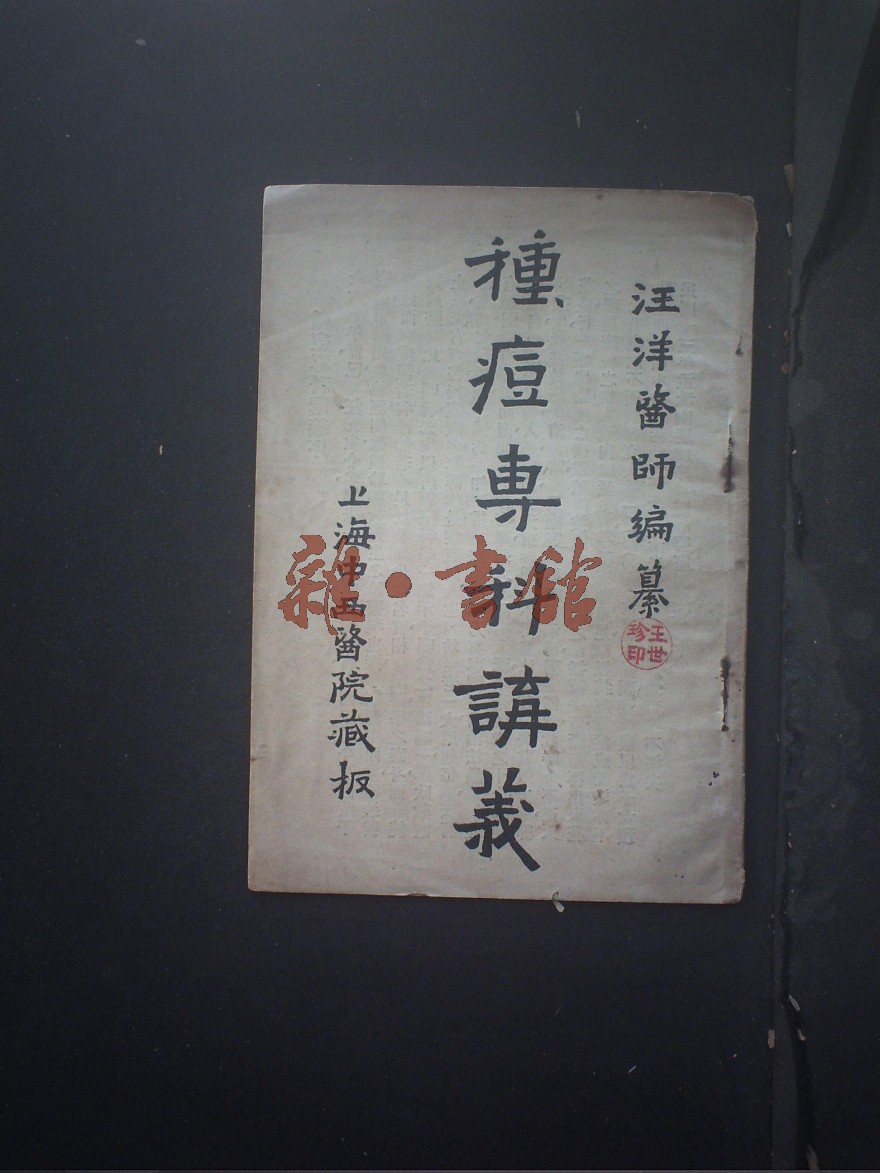 汪洋醫師編纂
王世珍印
種痘專科講義
上海中西醫院藏板
雜·書館